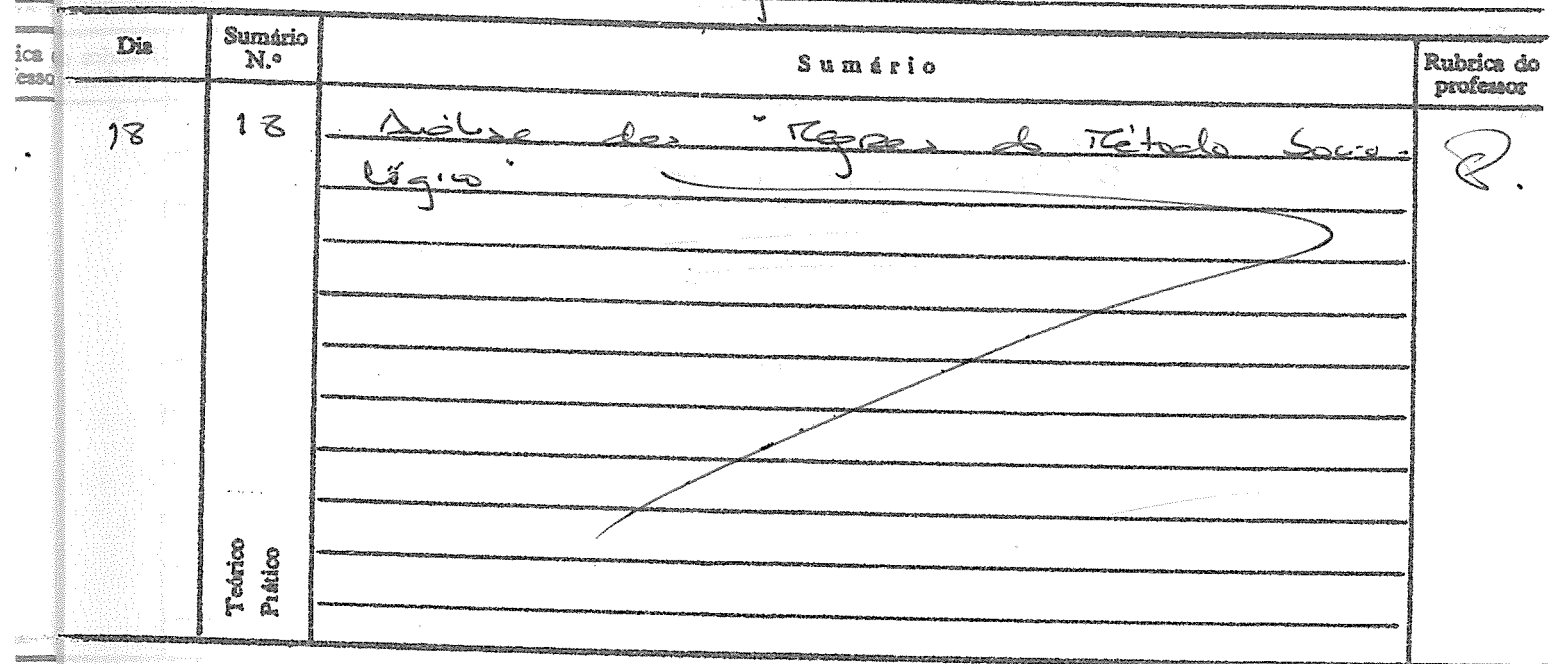 ica
fesso
Dia
Sumário
N.º
Sumário
Rubrica do
professor
18
18
Análise das "Regras do Método Socio-
lógico"
Teórico
Prático